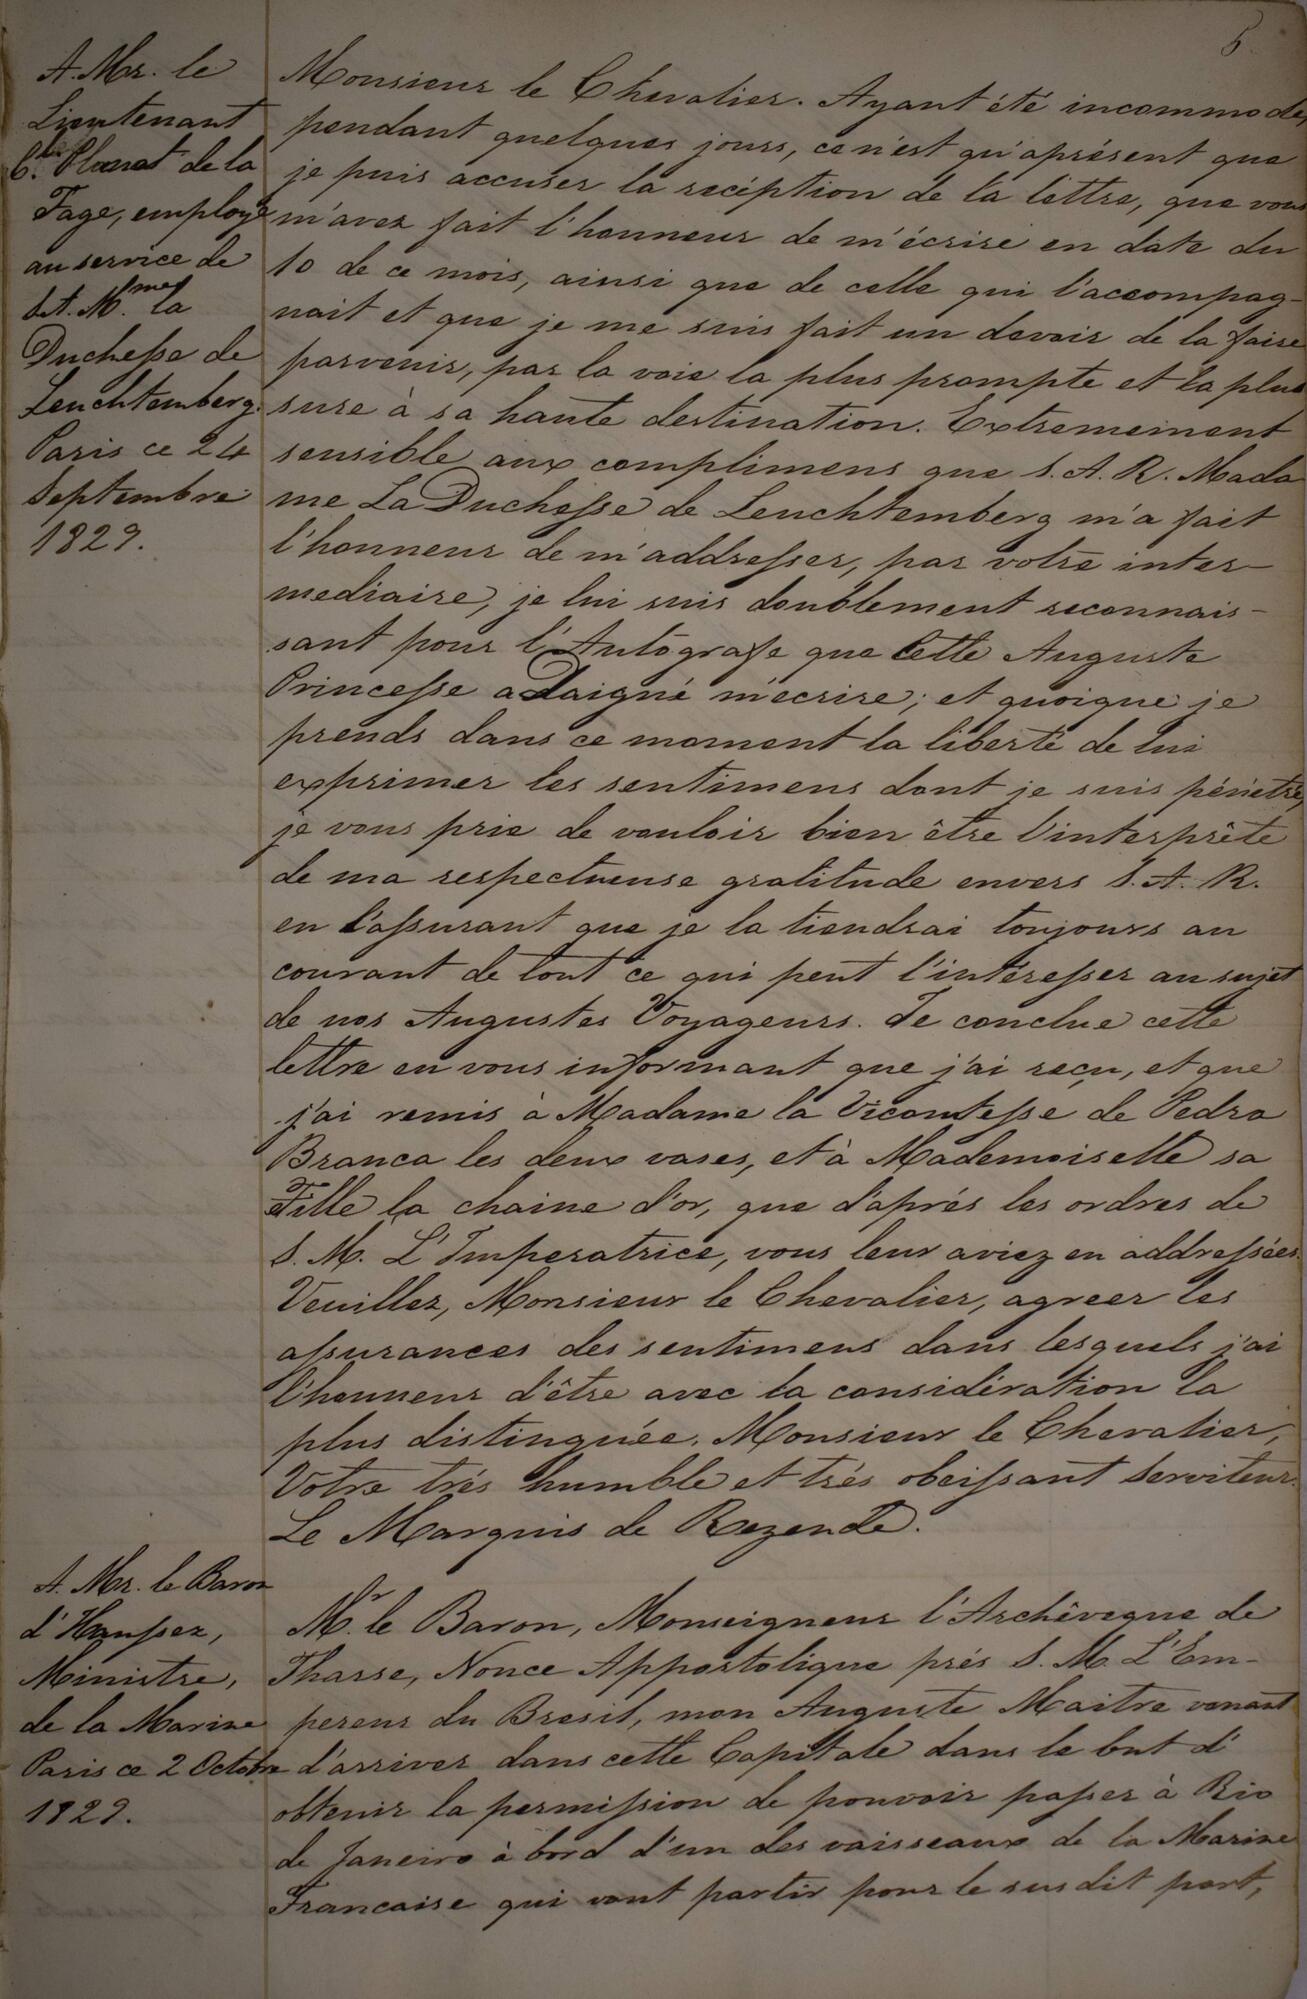 5
A. Mr. le
Lieutenant
C.el Planat de la
Fage, employé
au service de
S.A. M.me la
Duchesse de
Leuchtemberg.
Paris ce 24
Septembre
1829.
Monsieur le Chevalier. Ayant été incommodé,
pendant quelques jours, ce n'est qu'aprésent que
je puis accuser la recéption de la lettre, que vous
m'avez fait l'honneur de m'écrire en date du
10 de ce mois, ainsi que de celle qui l'accompag-
nait et que je me suis fait un devoir de la faire
parvenir, par la voie la plus prompte et la plus
sure à sa haute destination. Extremement
sensible aux complimens que S. A. R. Mada
me La Duchesse de Leuchtemberg m'a fait
l'honneur de m'addresser, par votre inter-
mediaire, je lui suis doublement reconnais-
sant pour l'Autografe que Cette Auguste
Princesse a Daigné m'ecrire; et quoique je
prends dans ce moment la liberté de lui
exprimer les sentimens dont je suis pénétré,
je vous prie de vouloir bien être l'interprête
de ma respectueuse gratitude envers S. A. R.
en l'assurant que je la tiendrai toujours au
courant de tout ce qui peut l'intéresser au sujet
de nos Augustes Voyageurs. Je conclue cette
lettre en vous informant que j'ai reçu, et que
j'ai remis à Madame la Vicomtesse de Pedra
Branca les deux vases, et à Mademoiselle sa
Fille la chaine d'or, que d'aprés les ordres de
S. M. L'Imperatrice, vous leur aviez en addressées.
Veuillez, Monsieur le Chevalier, agreer les
assurances des sentimens dans lesquels j'ai
l'honneur d'être avec la considération la
plus distinguée. Monsieur le Chevalier,
Votre trés humble et trés obeissant Serviteur.
Le Marquis de Rezende.
A. Mr. le Baron
d'Haussez,
Ministre,
de la Marine
Paris ce 2 Octobre
1829.
M.r le Baron, Monseigneur l'Archêveque de
Tharse, Nonce Appostolique prés S. M. L'Em-
pereur du Bresil, mon Auguste Maitre venant
d'arriver dans cette Capitale dans le but d'
obtenir la permission de pouvoir passer à Rio
de Janeiro à bord d'un des vaisseaux de la Marine
Francaise qui vont partir pour le susdit port,